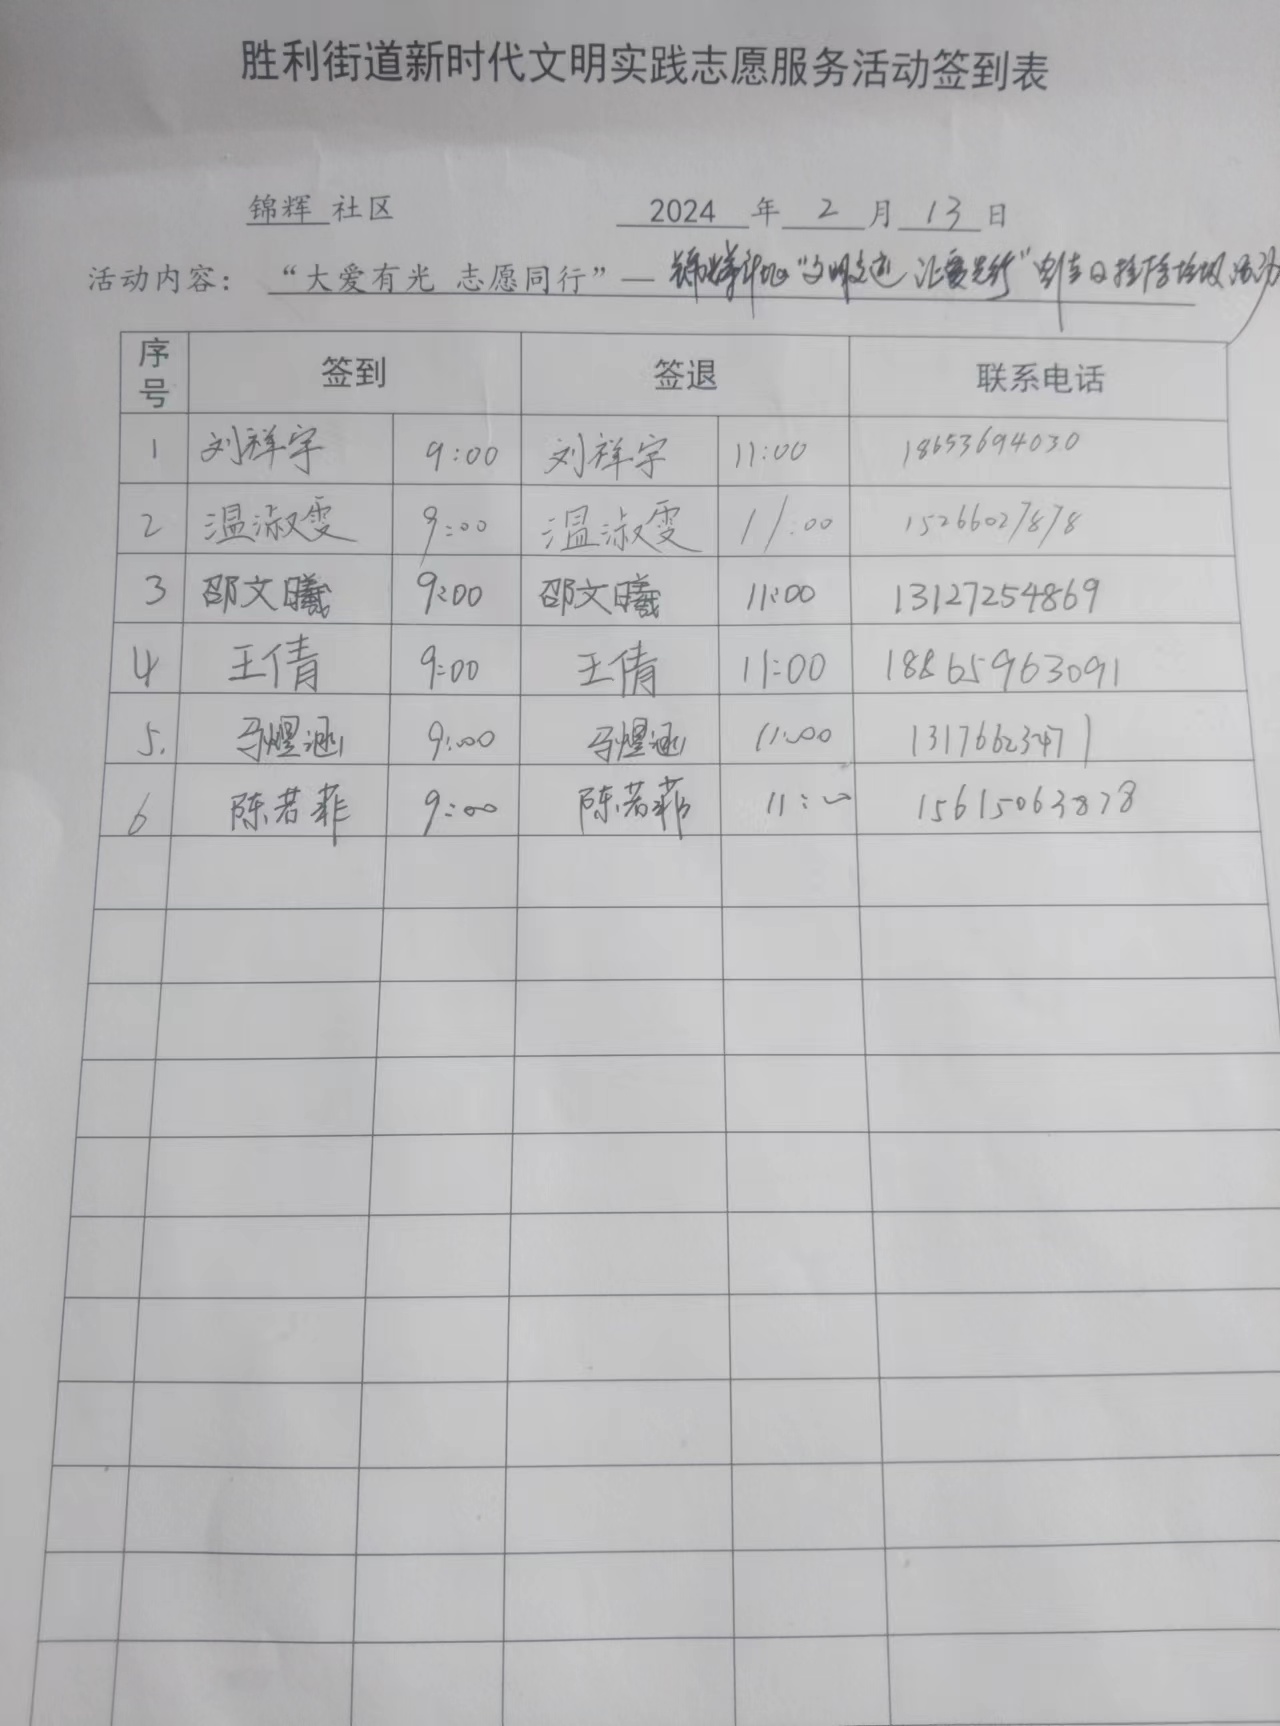 胜利街道新时代文明实践志愿服务活动签到表
锦辉 社区 2024 年 2 月 13 日
活动内容: “大爱有光 志愿同行”—锦辉社区“文明交通 让爱先行” 清扫垃圾活动
序号 签到 签退 联系电话
1 刘祥宇 9:00 刘祥宇 11:00 18653694030
2 温淑雯 9:00 温淑雯 11:00 15266027878
3 邵文曦 9:00 邵文曦 11:00 13127254869
4 王倩 9:00 王倩 11:00 18865963091
5. 马煜涵 9:00 马煜涵 11:00 13176623471
6 陈若菲 9:00 陈若菲 11:00 15615063878